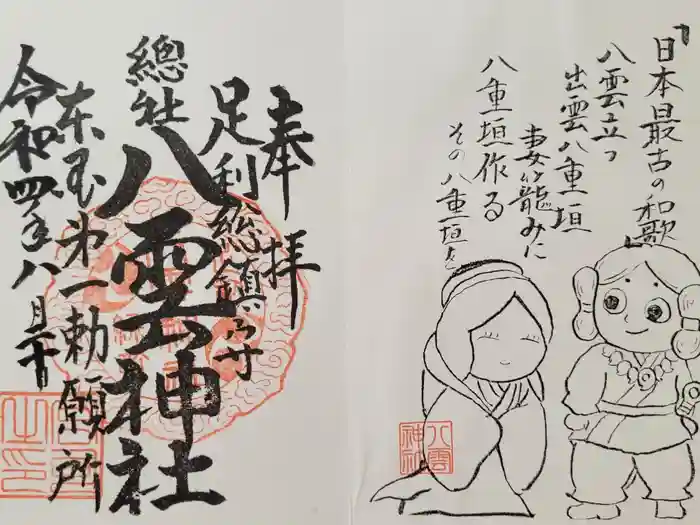 『日本最古の和歌』
八雲立つ
出雲八重垣
妻籠みに
八重垣作る
その八重垣を
奉拝
足利総鎮守
總社
八雲神社
東国第一勅願所
令和四年八月
八雲
神社